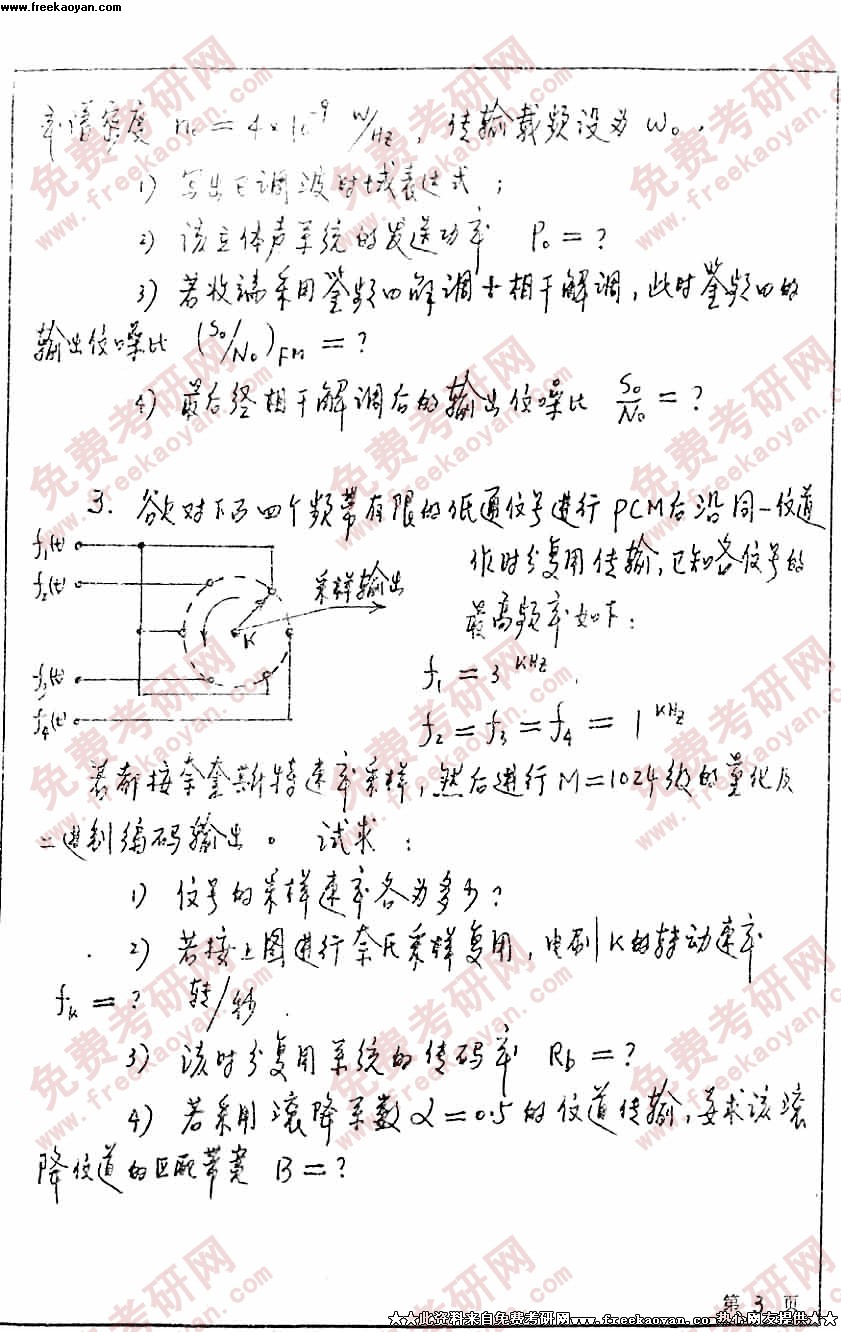 www.freekaoyan.com
率谱密度 n₀ = 4×10⁻⁹ W/Hz, 传输载频设为 ω₀.
1) 写出已调波时域表达式;
2) 该立体声系统的发送功率 P₀ = ?
3) 若收端采用鉴频四解调士相干解调, 此时鉴频四的
输出信噪比 (S₀/N₀)FM = ?
4) 最后经相干解调后的输出信噪比 S₀/N₀ = ?
3. 欲对下面四个频带有限的低通信号进行PCM后沿同一信道
作时分复用传输, 已知各信号的
最高频率如下:
f₁(t)
f₂(t)
f₃(t)
f₄(t)
采样输出
K
f₁ = 3 KHz.
f₂ = f₃ = f₄ = 1 KHz
若都按奈奎斯特速率采样, 然后进行M=1024级的量化及
二进制编码输出。 试求:
1) 信号的采样速率各为多少?
2) 若按上图进行奈氏采样复用, 电刷K的转动速率
fk = ? 转/秒.
3) 该时分复用系统的传码率 Rb = ?
4) 若采用滚降系数α=0.5的信道传输, 要求该滚
降信道的匹配带宽 B = ?
第 3 页
★★此资料来自免费考研网www.freekaoyan.com 热心网友提供★★
免费考研网
www.freekaoyan.com